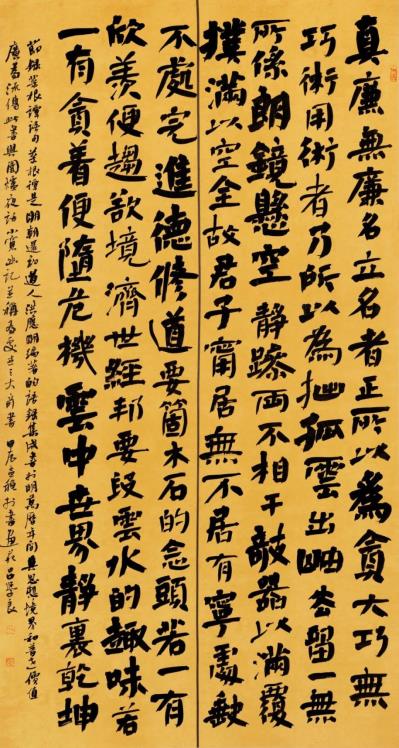 真廉無廉名立名者正所以為貪大巧無
巧術用術者乃所以為拙孤雲出岫去留一無
所係朗鏡懸空靜躁兩不相干敧器以滿覆
撲滿以空全故君子甯居無不居有寧處缺
不處完進德修道要箇木石的念頭若一有
欣羨便趨欲境濟世經邦要段雲水的趣味若
一有貪着便隨危機雲中世界靜裏乾坤
節錄菜根譚語句菜根譚是明朝還初道人洪應明編著的語錄集成書於明萬曆年間其思想境界和普世價值
廣為流傳此書與圍爐夜話小窗幽記並稱為處世三大奇書甲辰立秋於書畫苑呂學良